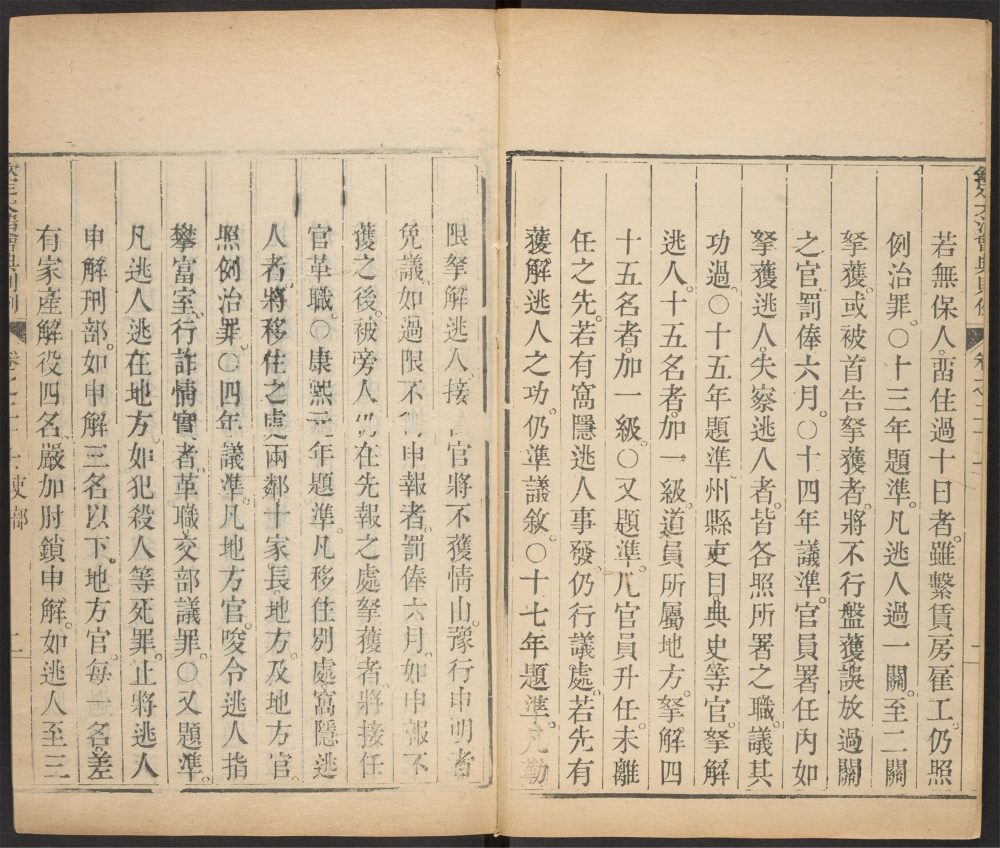 欽定大清會典則例
卷之二十
若無保人畱住過十日者雖繫賃房雇工仍照
例治罪○十三年題準凡逃人過一關至二關
拏獲或被首告拏獲者將不行盤獲誤放過關
之官罰俸六月○十四年議準官員署任內如
拏獲逃人失察逃人者皆各照所署之職議其
功過○十五年題準州縣吏目典史等官拏解
逃人十五名者加一級道員所屬地方拏解四
十五名者加一級○又題準凡官員升任未離
任之先若有窩隱逃人事發仍行議處若先有
獲解逃人之功仍準議敘○十七年題準凡勒
限拏解逃人接 官將不獲情由豫行申明者
免議如過限不 申報者罰俸六月如申報不
獲之後被旁人 在先報之處拏獲者將接任
官革職○康熙元年題準凡移住別處窩隱逃
人者將移住之處兩鄰十家長地方及地方官
照例治罪○四年議準凡地方官唆令逃人指
攀富室行詐情實者革職交部議罪○又題準
凡逃人逃在地方如犯殺人等死罪止將逃人
申解刑部如申解三名以下地方官每 名差
有家產解役四名嚴加肘鎖申解如逃人至三
欽定大清會典則例
卷之二十 吏部 二